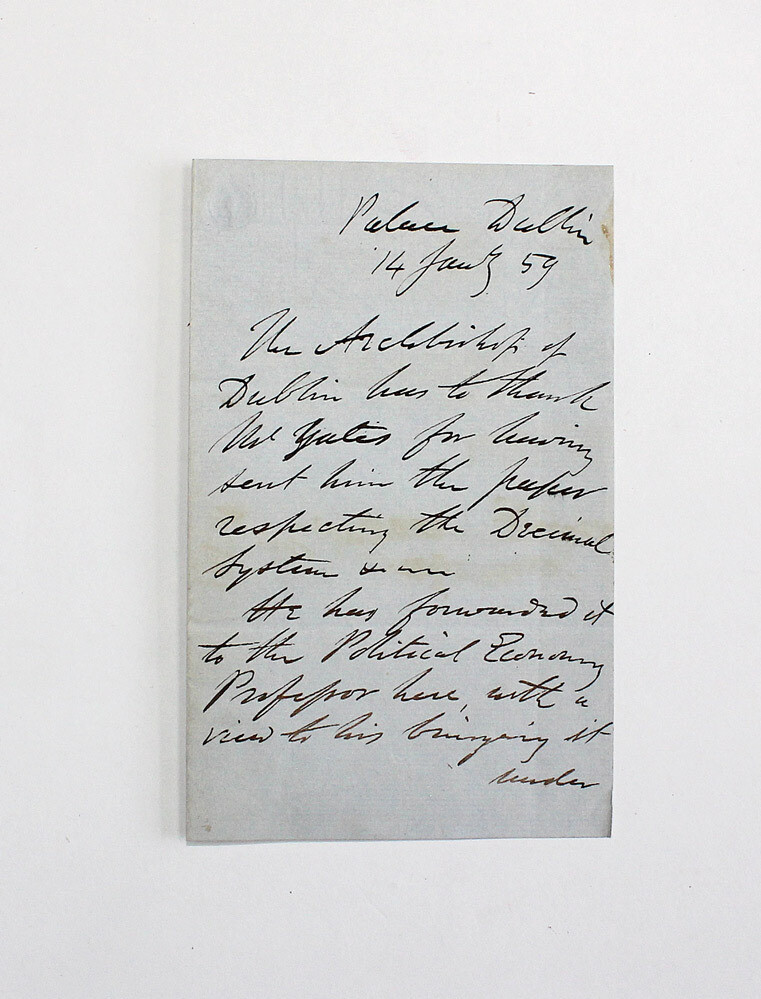 Palace Dublin
14 Jany 59
The Archbishop of
Dublin has to thank
Mr Yates for having
sent him the paper
respecting the Decimal
System
He has forwarded it
to the Political Economy
Professor here, with a
view to his bringing it
under